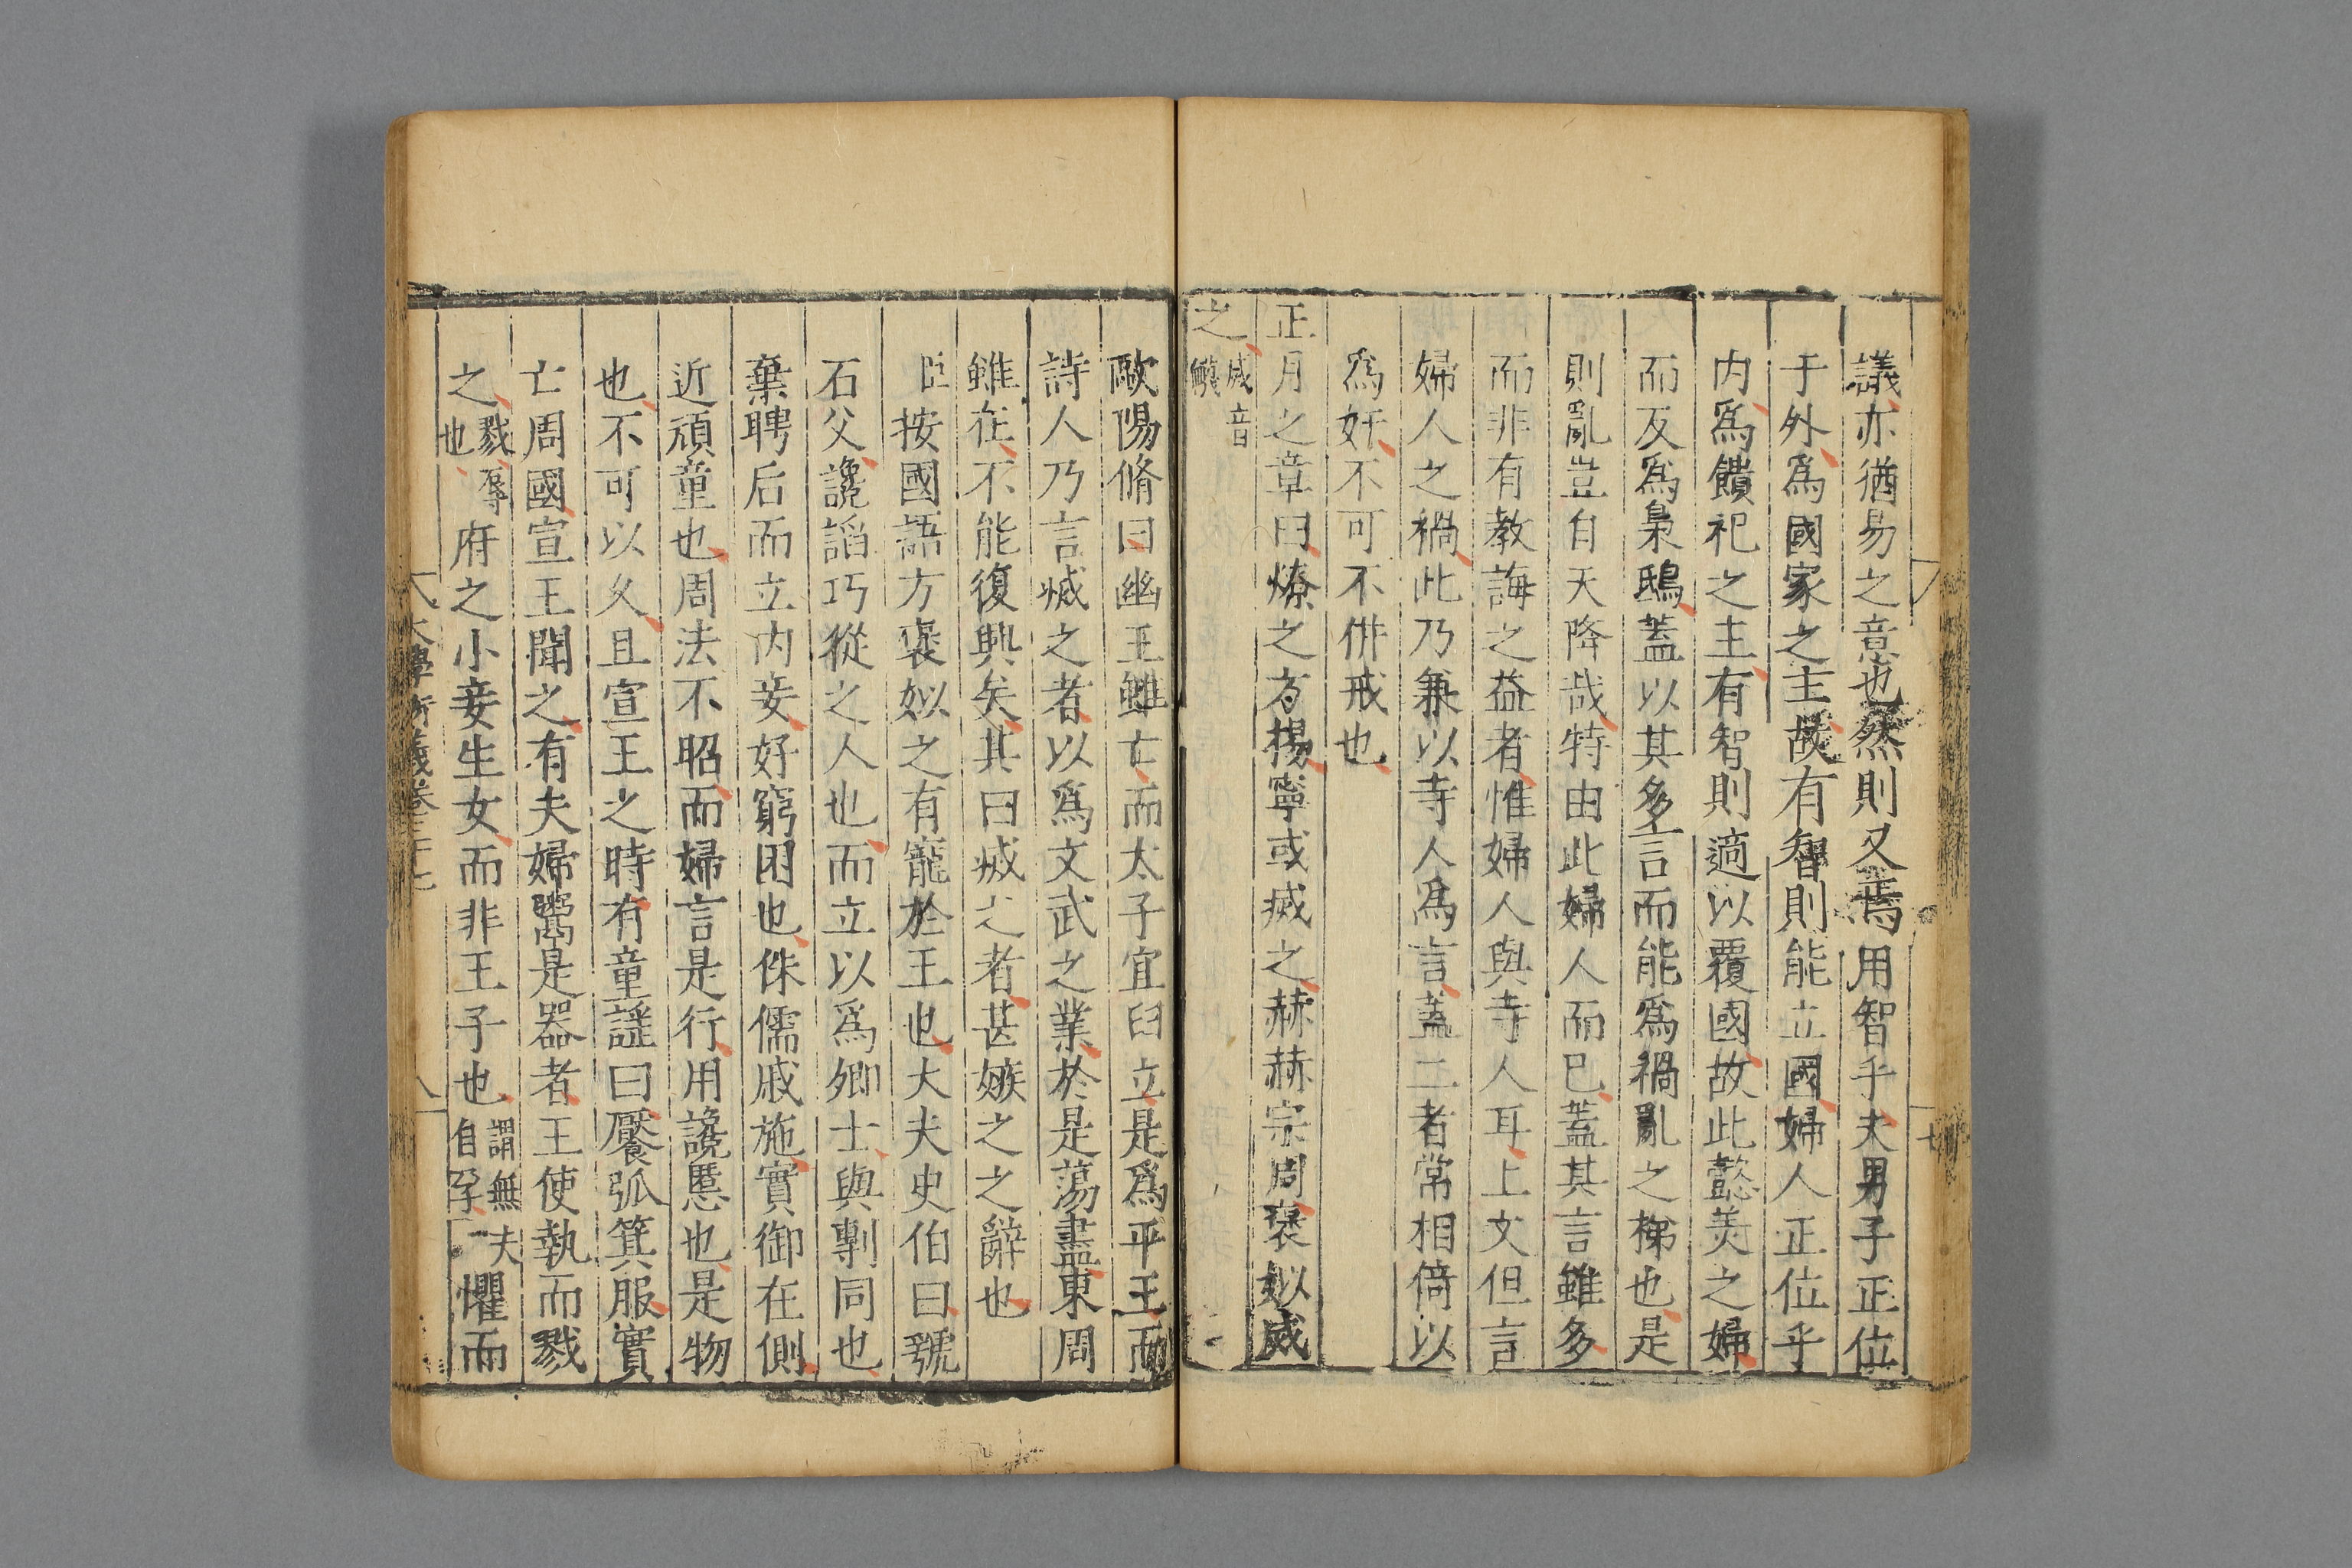 議亦猶易之意也然則又焉用智乎夫男子正位
于外爲國家之主故有智則能立國婦人正位乎
内爲饋祀之主有智則適以覆國故此懿美之婦
而反爲梟鴟蓋以其多言而能爲禍亂之梯也是
則亂豈自天降哉特由此婦人而巳蓋其言雖多
而非有教誨之益者惟婦人與寺人耳上文但言
婦人之禍此乃兼以寺人爲言蓋二者常相倚以
爲奸不可不併戒也
正月之章曰燎之方揚寧或烕之赫赫宗周褒姒烕
之烕音
歐陽脩曰幽王雖亡而太子宜臼立是爲平王而
詩人乃言烕之者以爲文武之業於是蕩盡東周
雖在不能復興矣其曰烕之者甚嫉之之辭也
臣按國語方褒姒之有寵於王也大夫史伯曰虢
石父讒謟巧從之人也而立以爲卿士與剸同也
棄聘后而立内妾好窮困也侏儒戚施實御在側
近頑童也周法不昭而婦言是行用讒慝也是物
也不可以久且宣王之時有童謡曰檿弧箕服實
亡周國宣王聞之有夫婦鬻是器者王使執而戮
之戮辱也府之小妾生女而非王子也謂無夫自孕懼而
大學衍義卷三十七